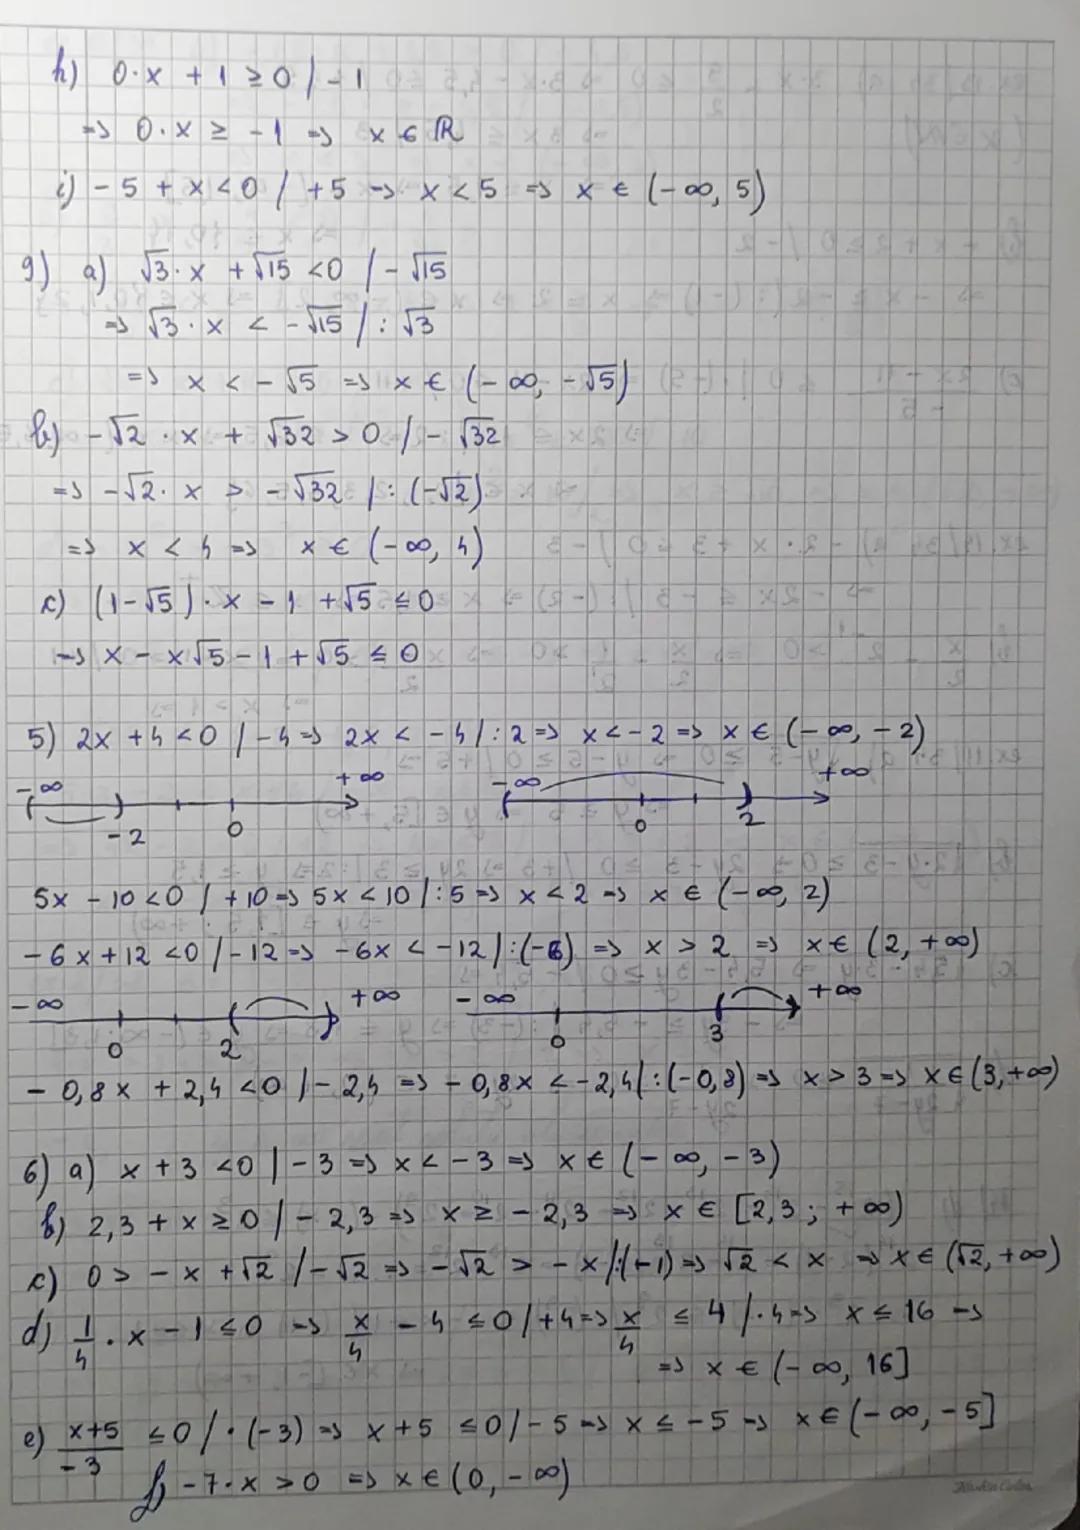 h) 0·x + 1 ≥ 0 / -1
=> 0·x ≥ -1 => x ∈ ℝ
i) -5 + x < 0 / +5 => x < 5 => x ∈ (-∞, 5)
9) a) √3·x + √15 < 0 / -√15
=> √3·x < -√15 / :√3
=> x < -√5 => x ∈ (-∞, -√5)
b) -√2·x + √32 > 0 / -√32
=> -√2·x > -√32 / :(-√2)
=> x < 4 => x ∈ (-∞, 4)
c) (1-√5)·x - 1 + √5 ≤ 0
=> x - x√5 - 1 + √5 ≤ 0
5) 2x + 4 < 0 / -4 => 2x < -4 / :2 => x < -2 => x ∈ (-∞, -2)
-∞ +∞ -∞ +∞
-2 0 0 2
5x - 10 < 0 / +10 => 5x < 10 / :5 => x < 2 => x ∈ (-∞, 2)
-6x + 12 < 0 / -12 => -6x < -12 / :(-6) => x > 2 => x ∈ (2, +∞)
-∞ +∞ -∞ +∞
0 2 0 3
-0,8x + 2,4 < 0 / -2,4 => -0,8x < -2,4 / :(-0,8) => x > 3 => x ∈ (3, +∞)
6) a) x + 3 < 0 / -3 => x < -3 => x ∈ (-∞, -3)
b) 2,3 + x ≥ 0 / -2,3 => x ≥ -2,3 => x ∈ [2,3 ; +∞)
c) 0 > -x + √2 / -√2 => -√2 > -x / :(-1) => √2 < x => x ∈ (√2, +∞)
d) 1/4 · x - 1 ≤ 0 => x/4 - 4 ≤ 0 / +4 => x/4 ≤ 4 / ·4 => x ≤ 16 =>
=> x ∈ (-∞, 16]
e) x+5/-3 ≤ 0 / ·(-3) => x + 5 ≤ 0 / -5 => x ≤ -5 => x ∈ (-∞, -5]
f) -7·x > 0 => x ∈ (0, -∞)